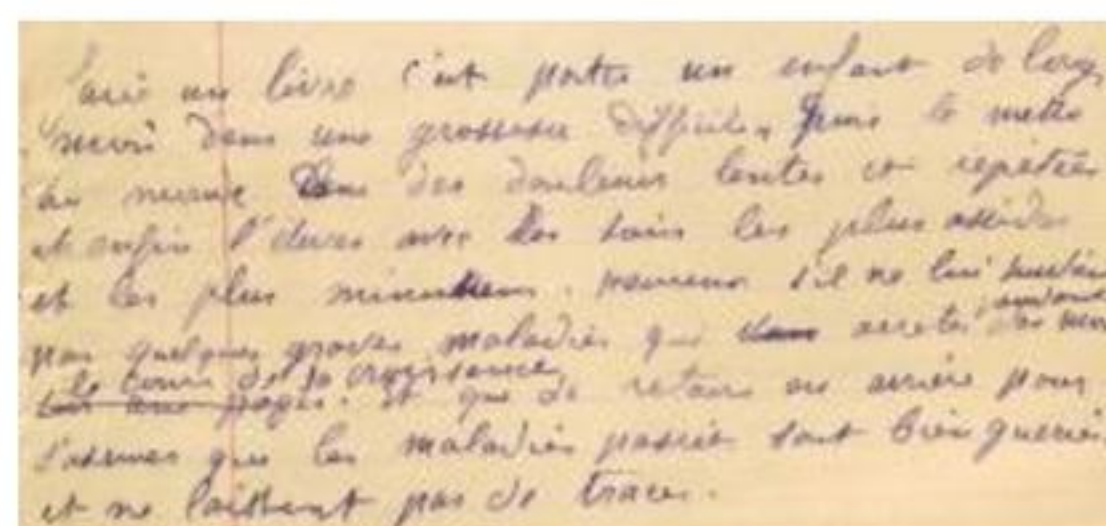 Faire un livre c'est porter un enfant de longs
mois dans une grossesse difficile, puis le mettre
au monde dans des douleurs lentes et répétées
et enfin l'élever avec les soins les plus assidus
et les plus minutieux. heureux s'il ne lui survient
pas quelques graves maladies qui arrête pendant des mois
le cours de sa croissance
pages. et que de retours en arrière pour
s'assurer que les maladies passées sont bien guéries
et ne laissent pas de traces.